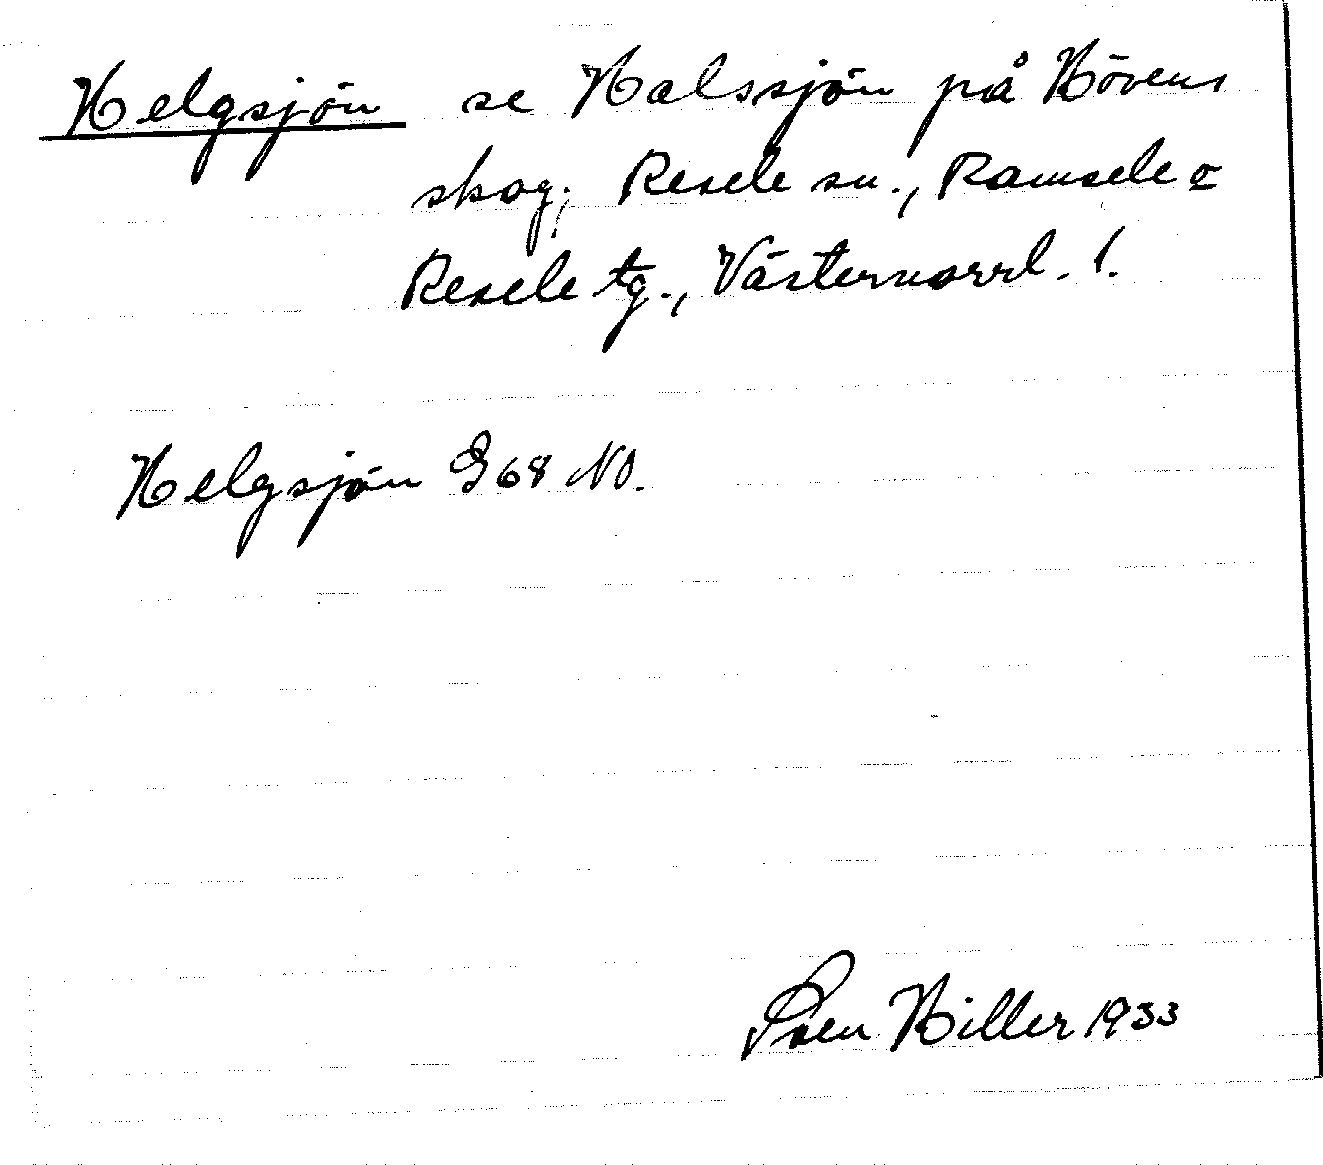 Helgsjön se Halssjön på Hövens
skog; Resele sn., Ramsele o
Resele tg., Västernorrl. l.
Helgsjön G68 NO.
Sven Hiller 1933